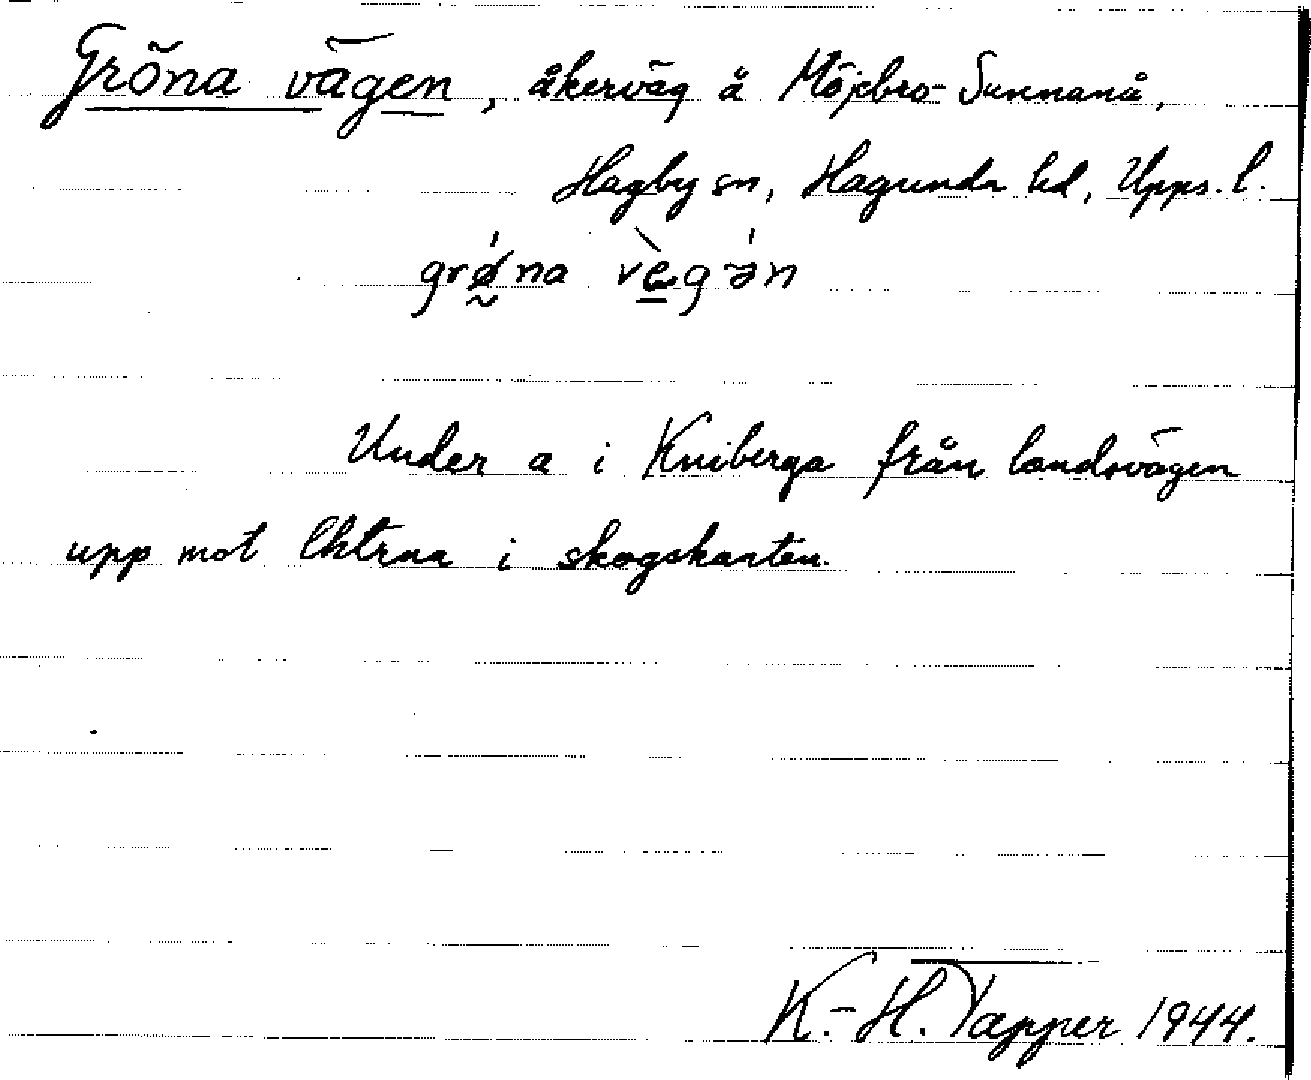 Gröna vägen, åkerväg å Möjebro-Sunnanå,
Hagby sn, Hagunda hd, Upps. l.
grǿ̰na vè̱gən
Under a i Kniberga från landsvägen
upp mot i skogskanten.
K.-H. Tapper 1944.